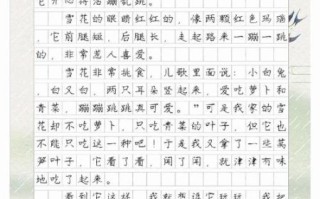 它开心得活蹦乱跳。
雪花的眼睛红红的，像两颗红色玛瑙
，它前腿短，后腿长，走起路来一蹦一跳
的，非常惹人喜爱。
雪花非常挑食，儿歌里面说：小白兔
，白又白，两只耳朵竖起来，爱吃萝卜和
青菜，蹦蹦跳跳真可爱。”可是我家的雪
花却不吃萝卜，只吃青菜的叶子，但它也
不能只吃这一种吧！于是我又拿了一些莴
笋叶子，它看了看，闻了闻，就津津有味
地吃了起来。
看到它这样，我就想逗它玩玩，我把